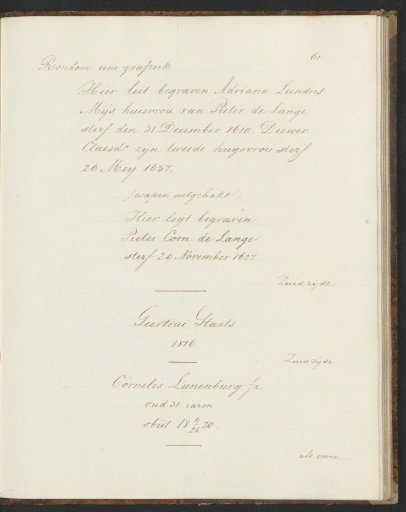 61
Rondom eene grafzerk
Hier leit begraven Adriana Lenders
Mijs huisvrou van Pieter de Lange
sterf den 31 December 1610. Diewer
Claesdr zijn tweede huijsvrou sterf
26 Meij 1637.
(wapen uitgehakt
Hier leijt begraven
Pieter Corn. de Lange
sterf 24 November 1627
Zuidzijde
Geertrui Staats
1816.
Zuidzijde
Cornelis Lunenburg Jz
oud 31 iaren
obiit 18 4/26 20
als voren